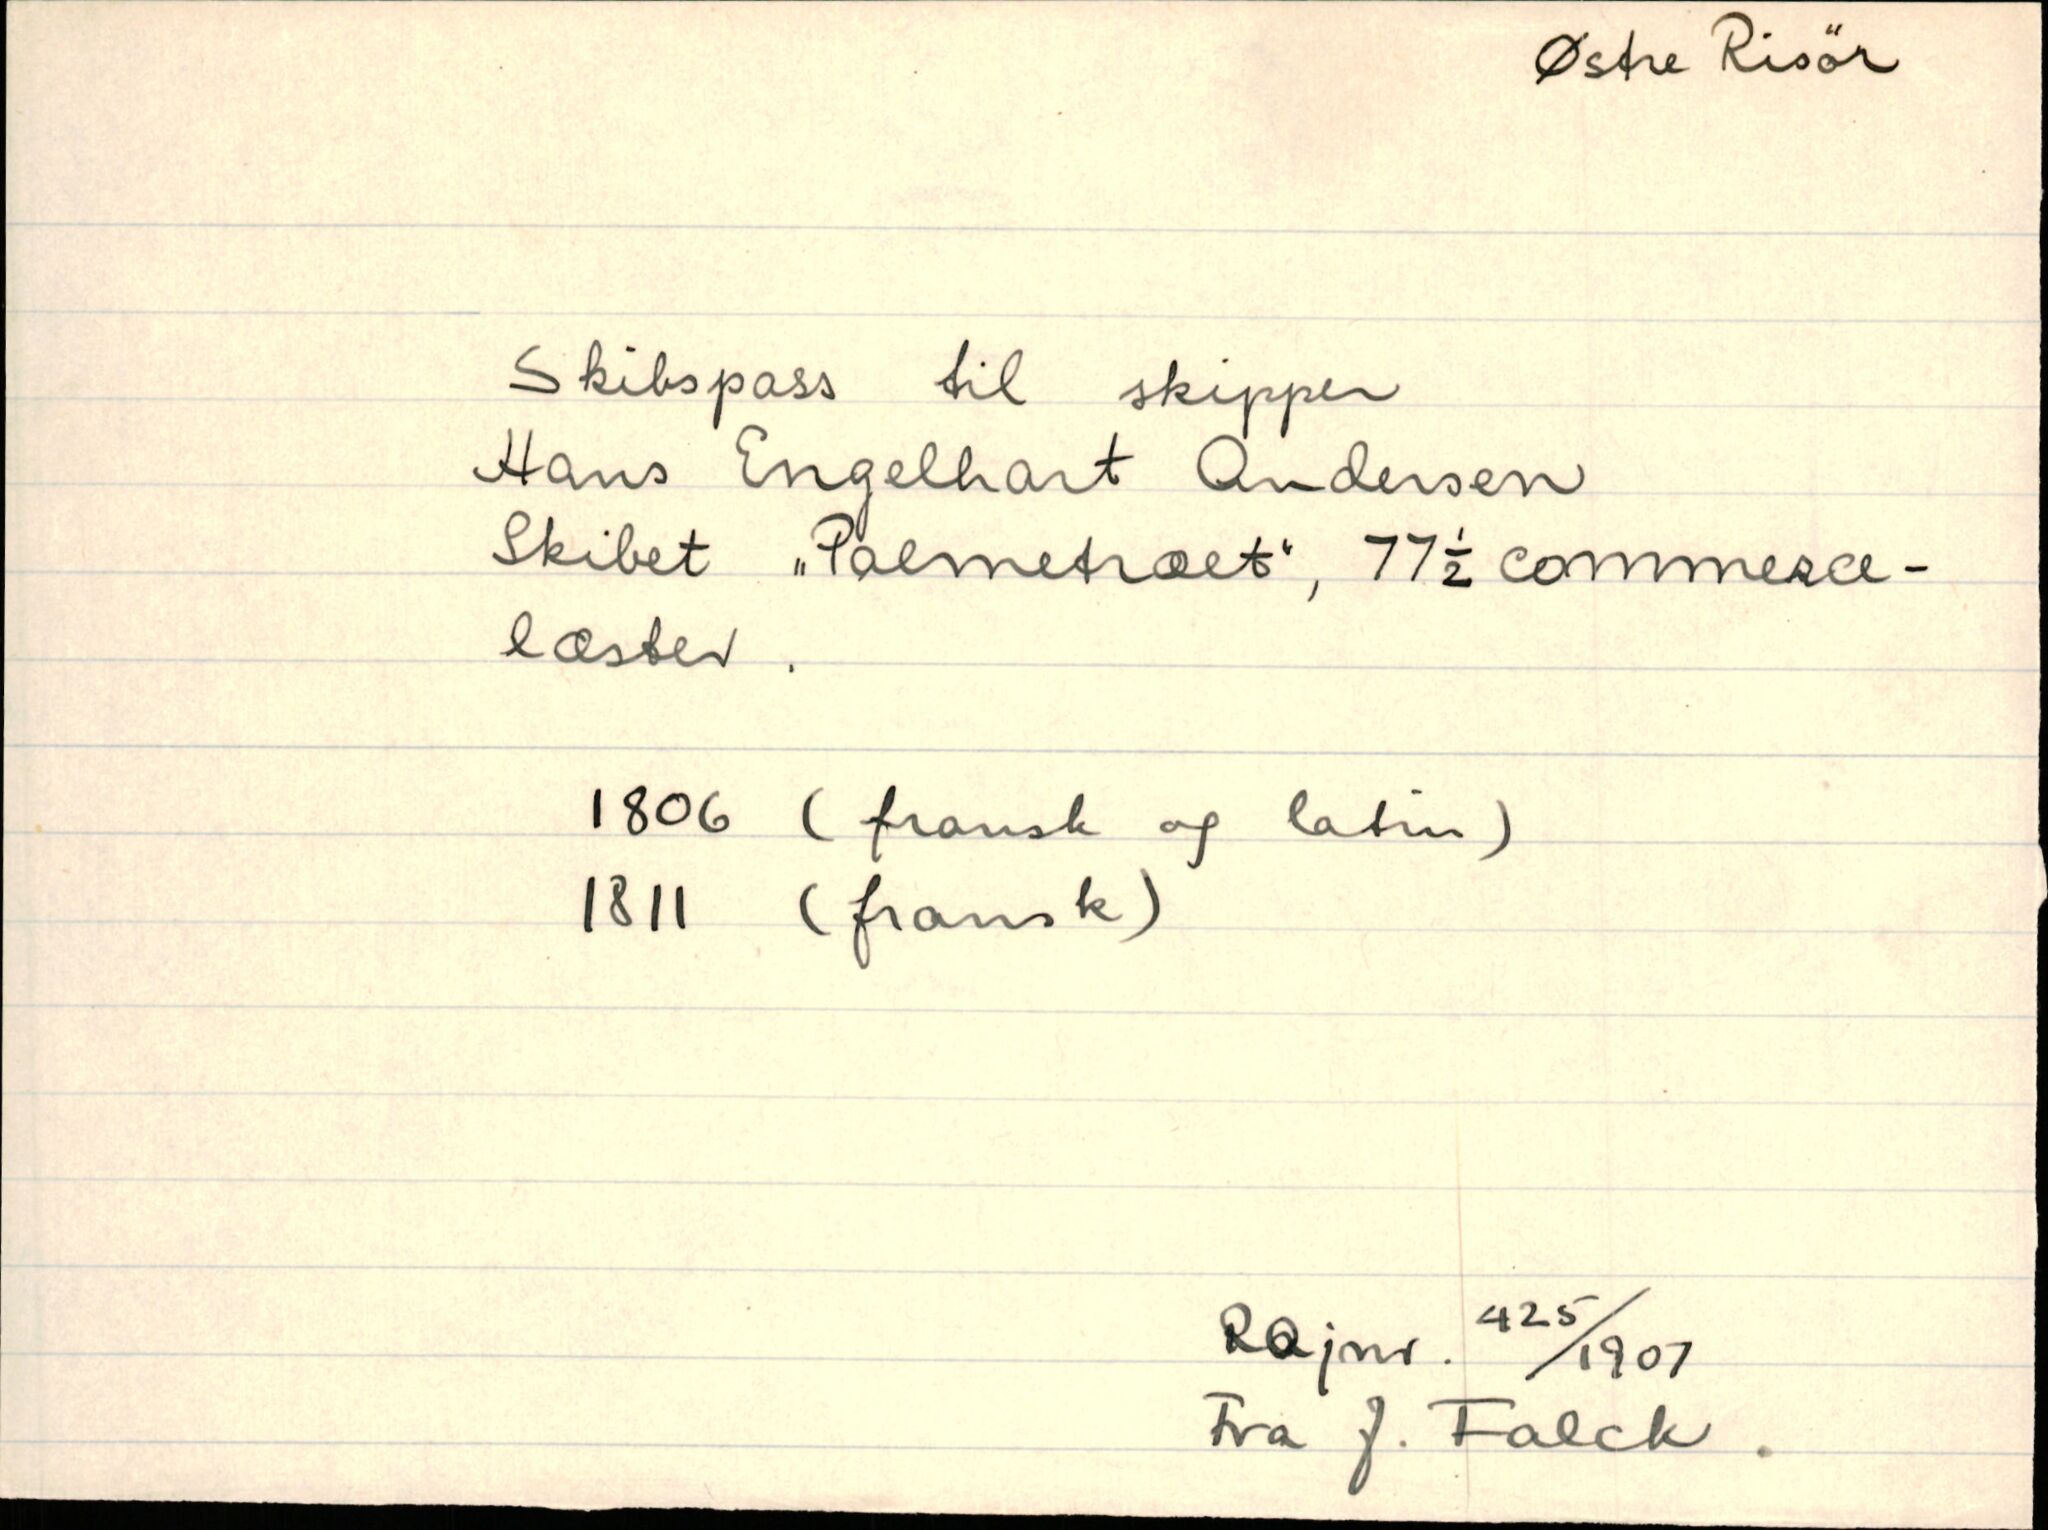 Østre Risör
Skibspass til skipper
Hans Engelhart Andersen
Skibet „Palmetræet“, 77½ commerce-
læster.
1806 (fransk og latin)
1811 (fransk)
RAjnr. 425/1907
Fra J. Falck.